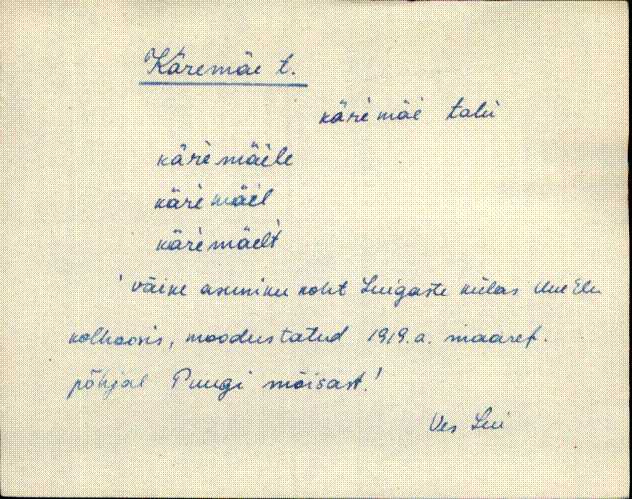 Käremäe t.
kärèmäè talu
kärèmäèle
kärèmäèl
kärèmäèlt
' väike asuniku koht Lingaste külas Uue Elu
kolhoosis, moodustatud 1919.a. maaref.
põhjal Puugi mõisast.'
Ves